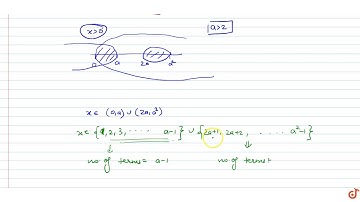 x>0
a>2
0 a 2a a²
x ∈ (0,a) ∪ (2a, a²)
x ∈ {1, 2, 3, ..... a-1} ∪ {2a+1, 2a+2, ...... a²-1}
no of terms = a-1 no of terms =